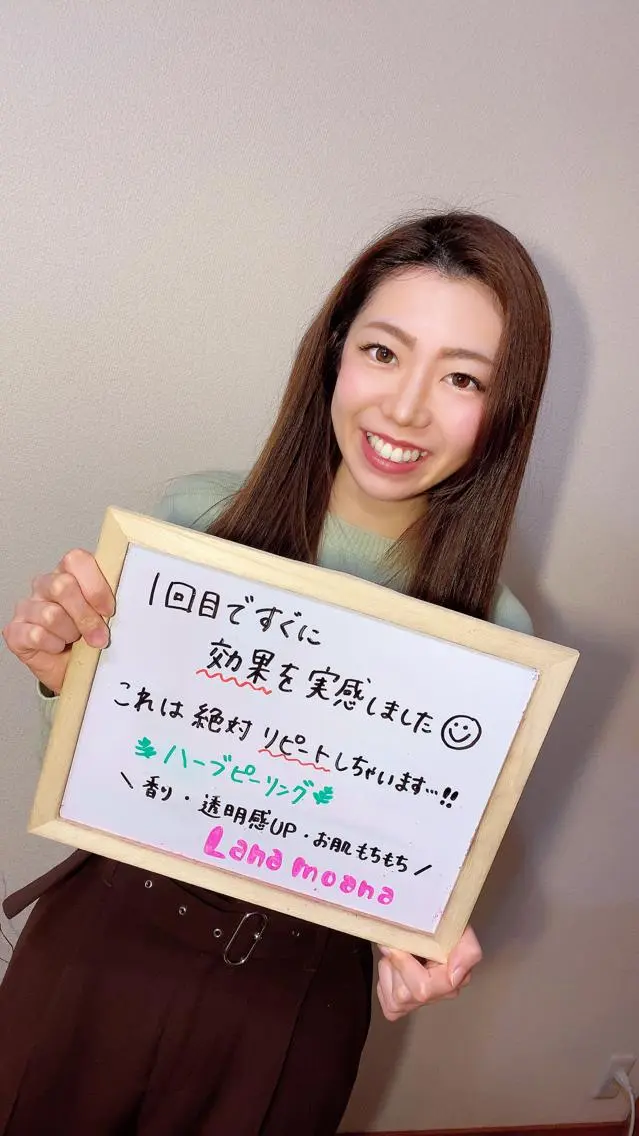 1回目ですぐに
効果を実感しました
これは絶対リピートしちゃいます…!!
ハーブピーリング
\ 香り・透明感UP・お肌もちもち /
Lana moana